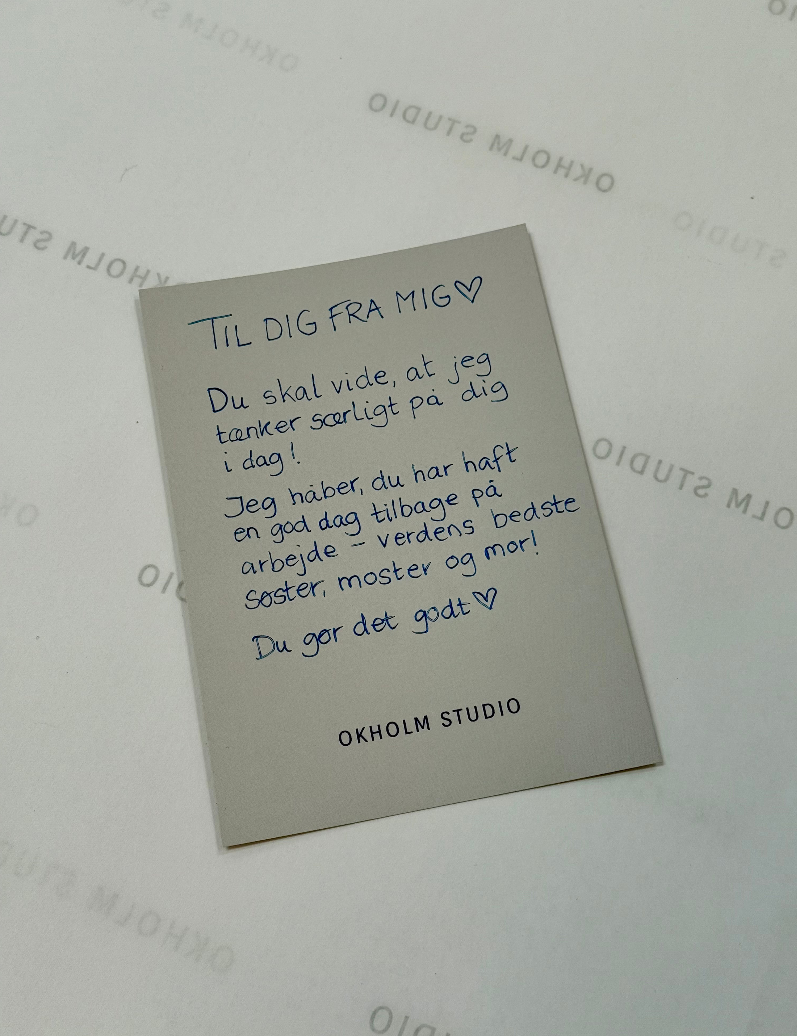 TIL DIG FRA MIG♡
Du skal vide, at jeg
tænker særligt på dig
i dag!
Jeg håber, du har haft
en god dag tilbage på
arbejde - verdens bedste
søster, moster og mor!
Du gør det godt♡
OKHOLM STUDIO
OKHOLM STUDIO
OKHOLM STUDIO
STUDIO
OKHOLM STU
STUDIO
OLM
OK
DIO
OKHOLM STUD
DIO